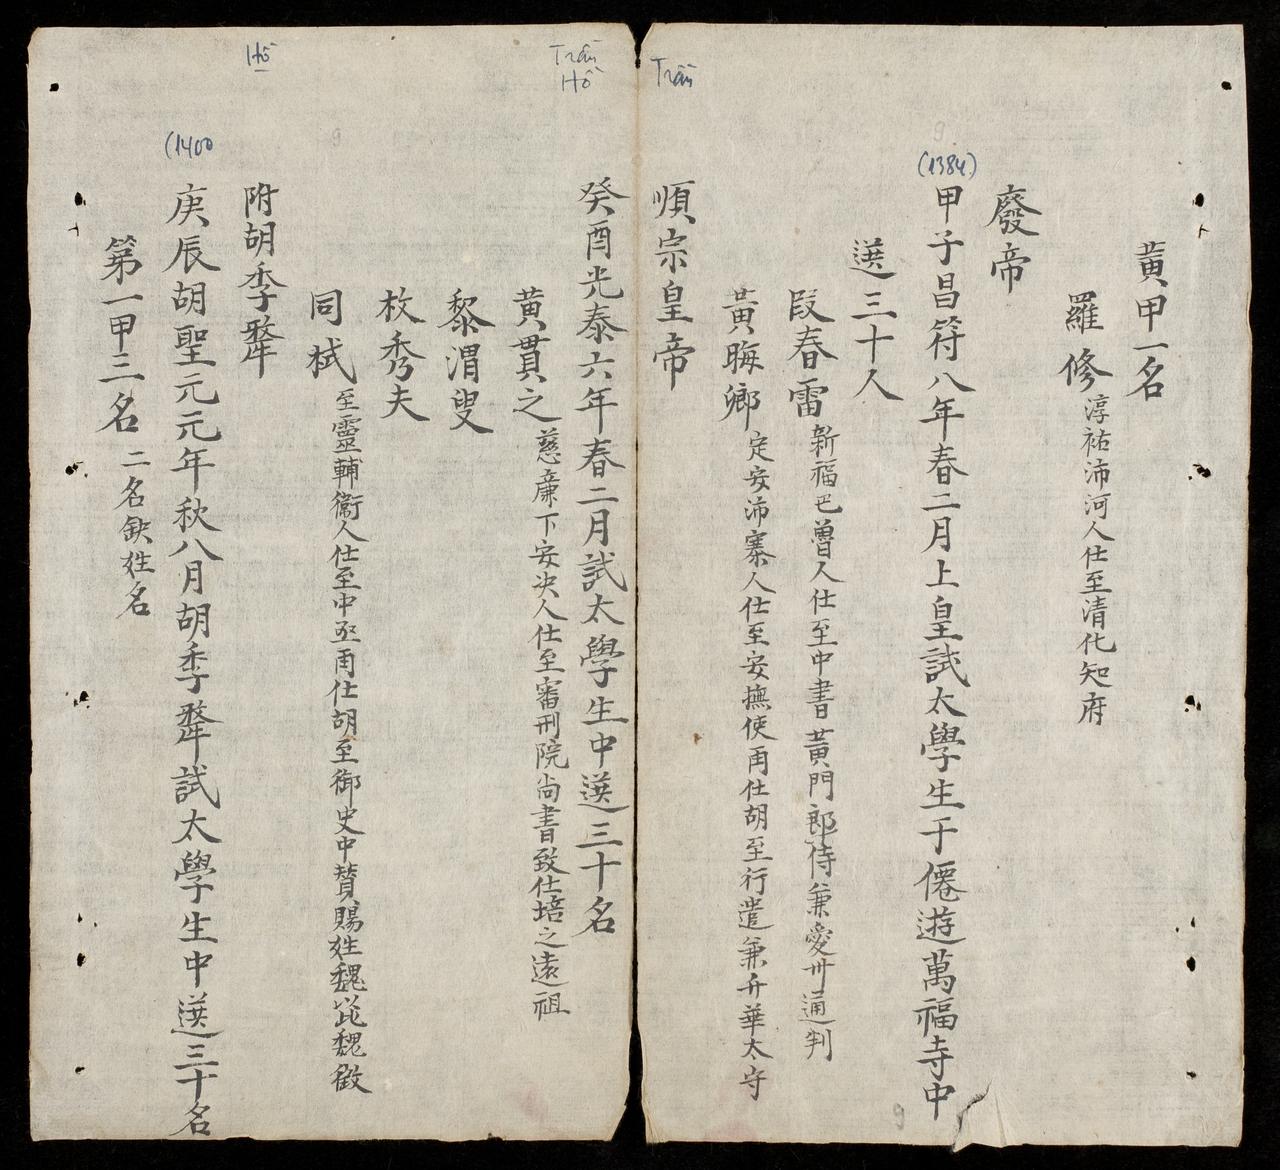 Trần
黄甲一名
羅修 淳祐沛河人仕至清化知府
廢帝
(1384)
甲子昌符八年春二月上皇試太學生于僊遊萬福寺中
選三十人
段春雷 新福巴曾人仕至中書黄門郎侍兼愛州通判
黄晦鄉 定安沛寨人仕至安撫使再仕胡至行遣兼升華太守
順宗皇帝
Trần
Hồ
癸酉光泰六年春二月試太學生中選三十名
黄貫之 慈廉下安决人仕至審刑院尚書致仕培之遠祖
黎渭叟
枚秀夫
同栻 至靈輔衞人仕至中丞再仕胡至御史中賛賜姓魏比魏徵
Hồ
附胡季犛
(1400
庚辰胡聖元元年秋八月胡季犛試太學生中選三十名
第一甲三名 二名缺姓名
9
9
9